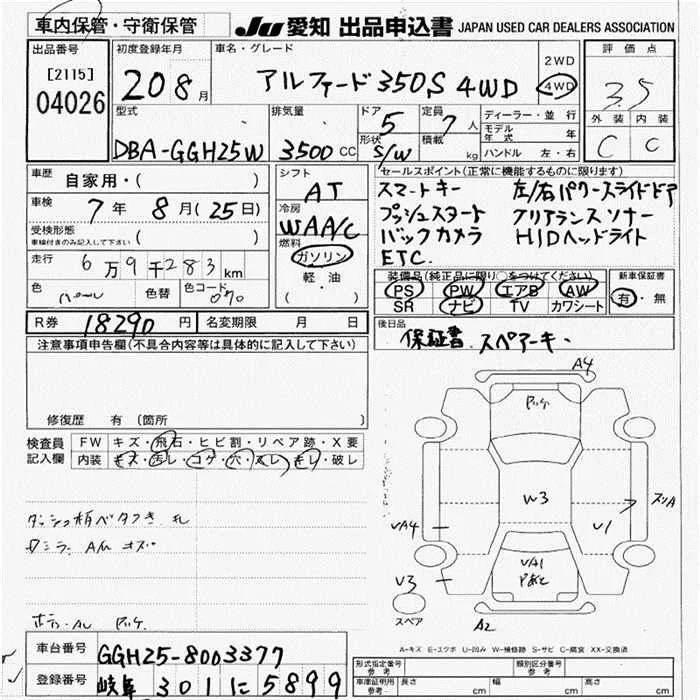 車内保管・守衛保管
JU 愛知 出品申込書 JAPAN USED CAR DEALERS ASSOCIATION
出品番号 [2115] 04026
初度登録年月 20 8月
車名・グレード アルファード 350S 4WD
2WD
4WD
評価点 3.5
外装 内装
C C
型式 DBA-GGH25W
排気量 3500 CC
ドア 5
形状 S/W
定員 7 人
積載 kg
ディーラー・並行
モデル年式 年
ハンドル 左・右
車歴 自家用・( )
車検 7年 8月(25日)
受検形態 ( )
車検付きのみ記入して下さい
走行 6万9千283km
色 色替 色コード 070
シフト AT
冷房 WAA/C
燃料 ガソリン
軽・油
( )
セールスポイント(正常に機能するものに限ります)
スマートキー 左/右パワースライドドア
プッシュスタート クリアランスソナー
バックカメラ HIDヘッドライト
ETC.
装備品(純正品に限り○をつけてください)
PS PW エアB AW
SR ナビ TV カワシート
新車保証書
有・無
R券 18290 円 名変期限 月 日
後日品 保証書. スペアーキー
注意事項申告欄(不具合内容等は具体的に記入して下さい)
修復歴 有(箇所 )
検査員記入欄
FW キズ・飛石・ヒビ割・リペア跡・X要
内装 キズ・汚レ・コゲ・穴・スレ・キレ・破レ
A4
W3
VA4
V1
V3
VA1
A2
スペア
A-キズ E-エクボ U-凹み W-補修跡 S-サビ C-腐食 XX-交換済
車台番号 GGH25-8003377
登録番号 岐阜 301 に 5899
形式指定番号 参考
類別区分番号 参考
車庫証明用 参考 長さ cm 幅 cm 高さ cm